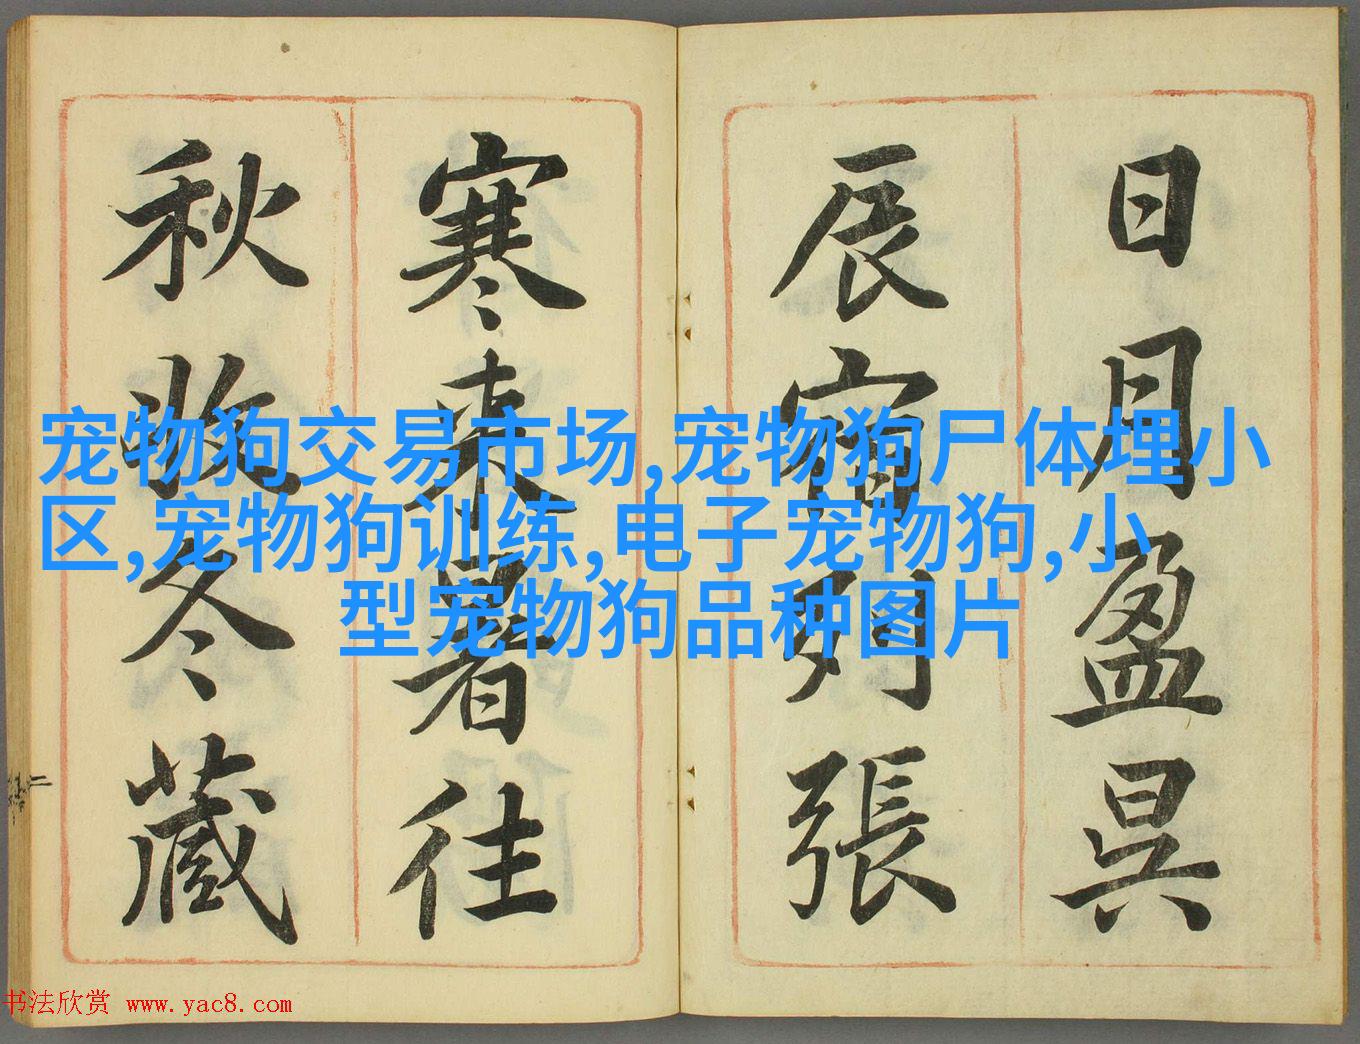 日月盈昃
辰宿列張
寒来暑往
秋收冬藏
宠物狗交易市场,宠物狗尸体埋小
区,宠物狗训练,电子宠物狗,小
型宠物狗品种图片
书法欣赏 www.yac8.com